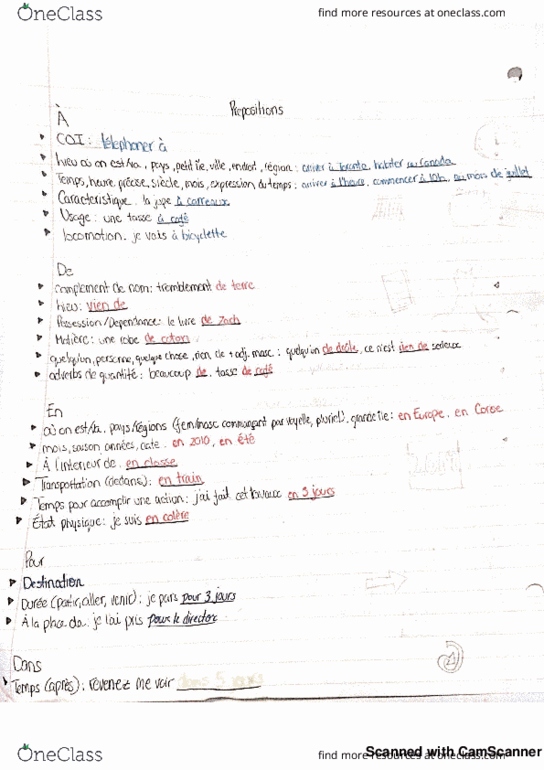 OneClass
find more resources at oneclass.com
Prepositions
À
COI: téléphoner à
lieu où on est/va, pays, petit île, ville, endroit, région: arriver à Toronto, habiter au Canada
Temps, heure précise, siècle, mois, expression du temps: arriver à l'heure, commencer à 10h, au mois de juillet
Caracteristique: la jupe à carreaux
Usage: une tasse à café
locomotion: je vais à bicyclette
De
complement de nom: tremblement de terre
lieu: vien de
Possession/Dependance: le livre de Zach
Matière: une robe de coton
quelqu'un, personne, quelque chose, rien, de + adj. masc.: quelqu'un de drôle, ce n'est rien de serieux
adverbs de quantité: beaucoup de, tasse de café
En
où on est/va, pays/régions (fem/masc commençant par voyelle, pluriel), grande île: en Europe, en Corse
mois, saison, années, date: en 2010, en été
À l'interieur de: en classe
Transportation (dedans): en train
Temps pour accomplir une action: j'ai fait cet travaux en 3 jours
État physique: je suis en colère
Pour
Destination
Durée (partir, aller, venir): je pars pour 3 jours
À la place de: je l'ai pris pour le director
Dans
Temps (après): revenez me voir dans 5 jours
OneClass
find more resources at oneclass.com
Scanned with CamScanner